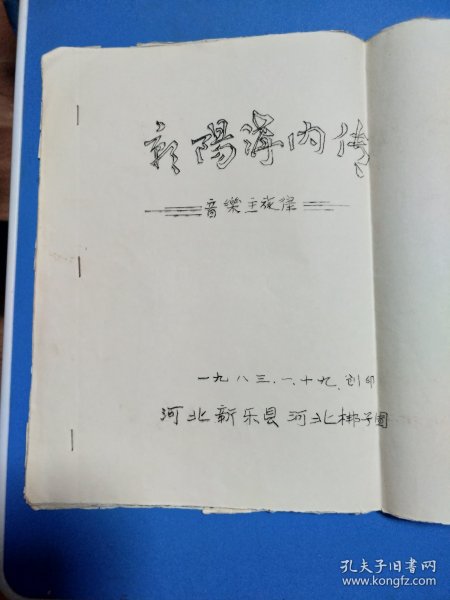 朝陽溝内传
音樂主旋律
一九八三.一.十九.刻印
河北新乐县河北梆子團
孔夫子旧书网
www.kongfz.com